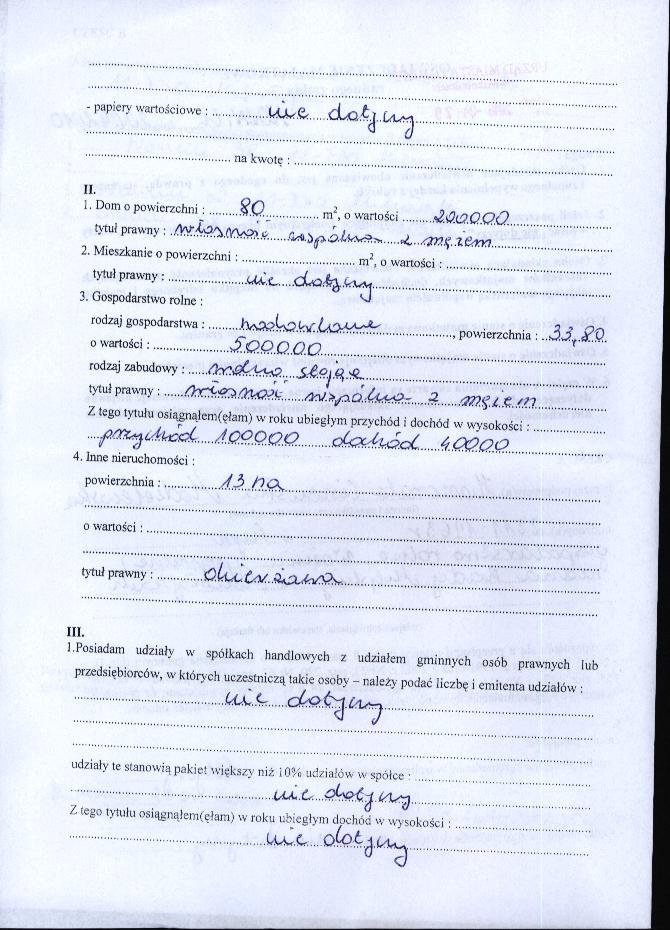 - papiery wartościowe : nie dotyczy
na kwotę :
II.
1. Dom o powierzchni : 80 m², o wartości 200000
tytuł prawny : własność wspólna z mężem
2. Mieszkanie o powierzchni : m², o wartości :
tytuł prawny : nie dotyczy
3. Gospodarstwo rolne :
rodzaj gospodarstwa : hodowlane, powierzchnia : 33,80
o wartości : 500000
rodzaj zabudowy : wolno stojąca
tytuł prawny : własność wspólna z mężem
Z tego tytułu osiągnąłem(ęłam) w roku ubiegłym przychód i dochód w wysokości :
przychód 100000 dochód 40000
4. Inne nieruchomości :
powierzchnia : 13 ha
o wartości :
tytuł prawny : dzierżawa
III.
1.Posiadam udziały w spółkach handlowych z udziałem gminnych osób prawnych lub
przedsiębiorców, w których uczestniczą takie osoby – należy podać liczbę i emitenta udziałów :
nie dotyczy
udziały te stanowią pakiet większy niż 10% udziałów w spółce :
nie dotyczy
Z tego tytułu osiągnąłem(ęłam) w roku ubiegłym dochód w wysokości :
nie dotyczy